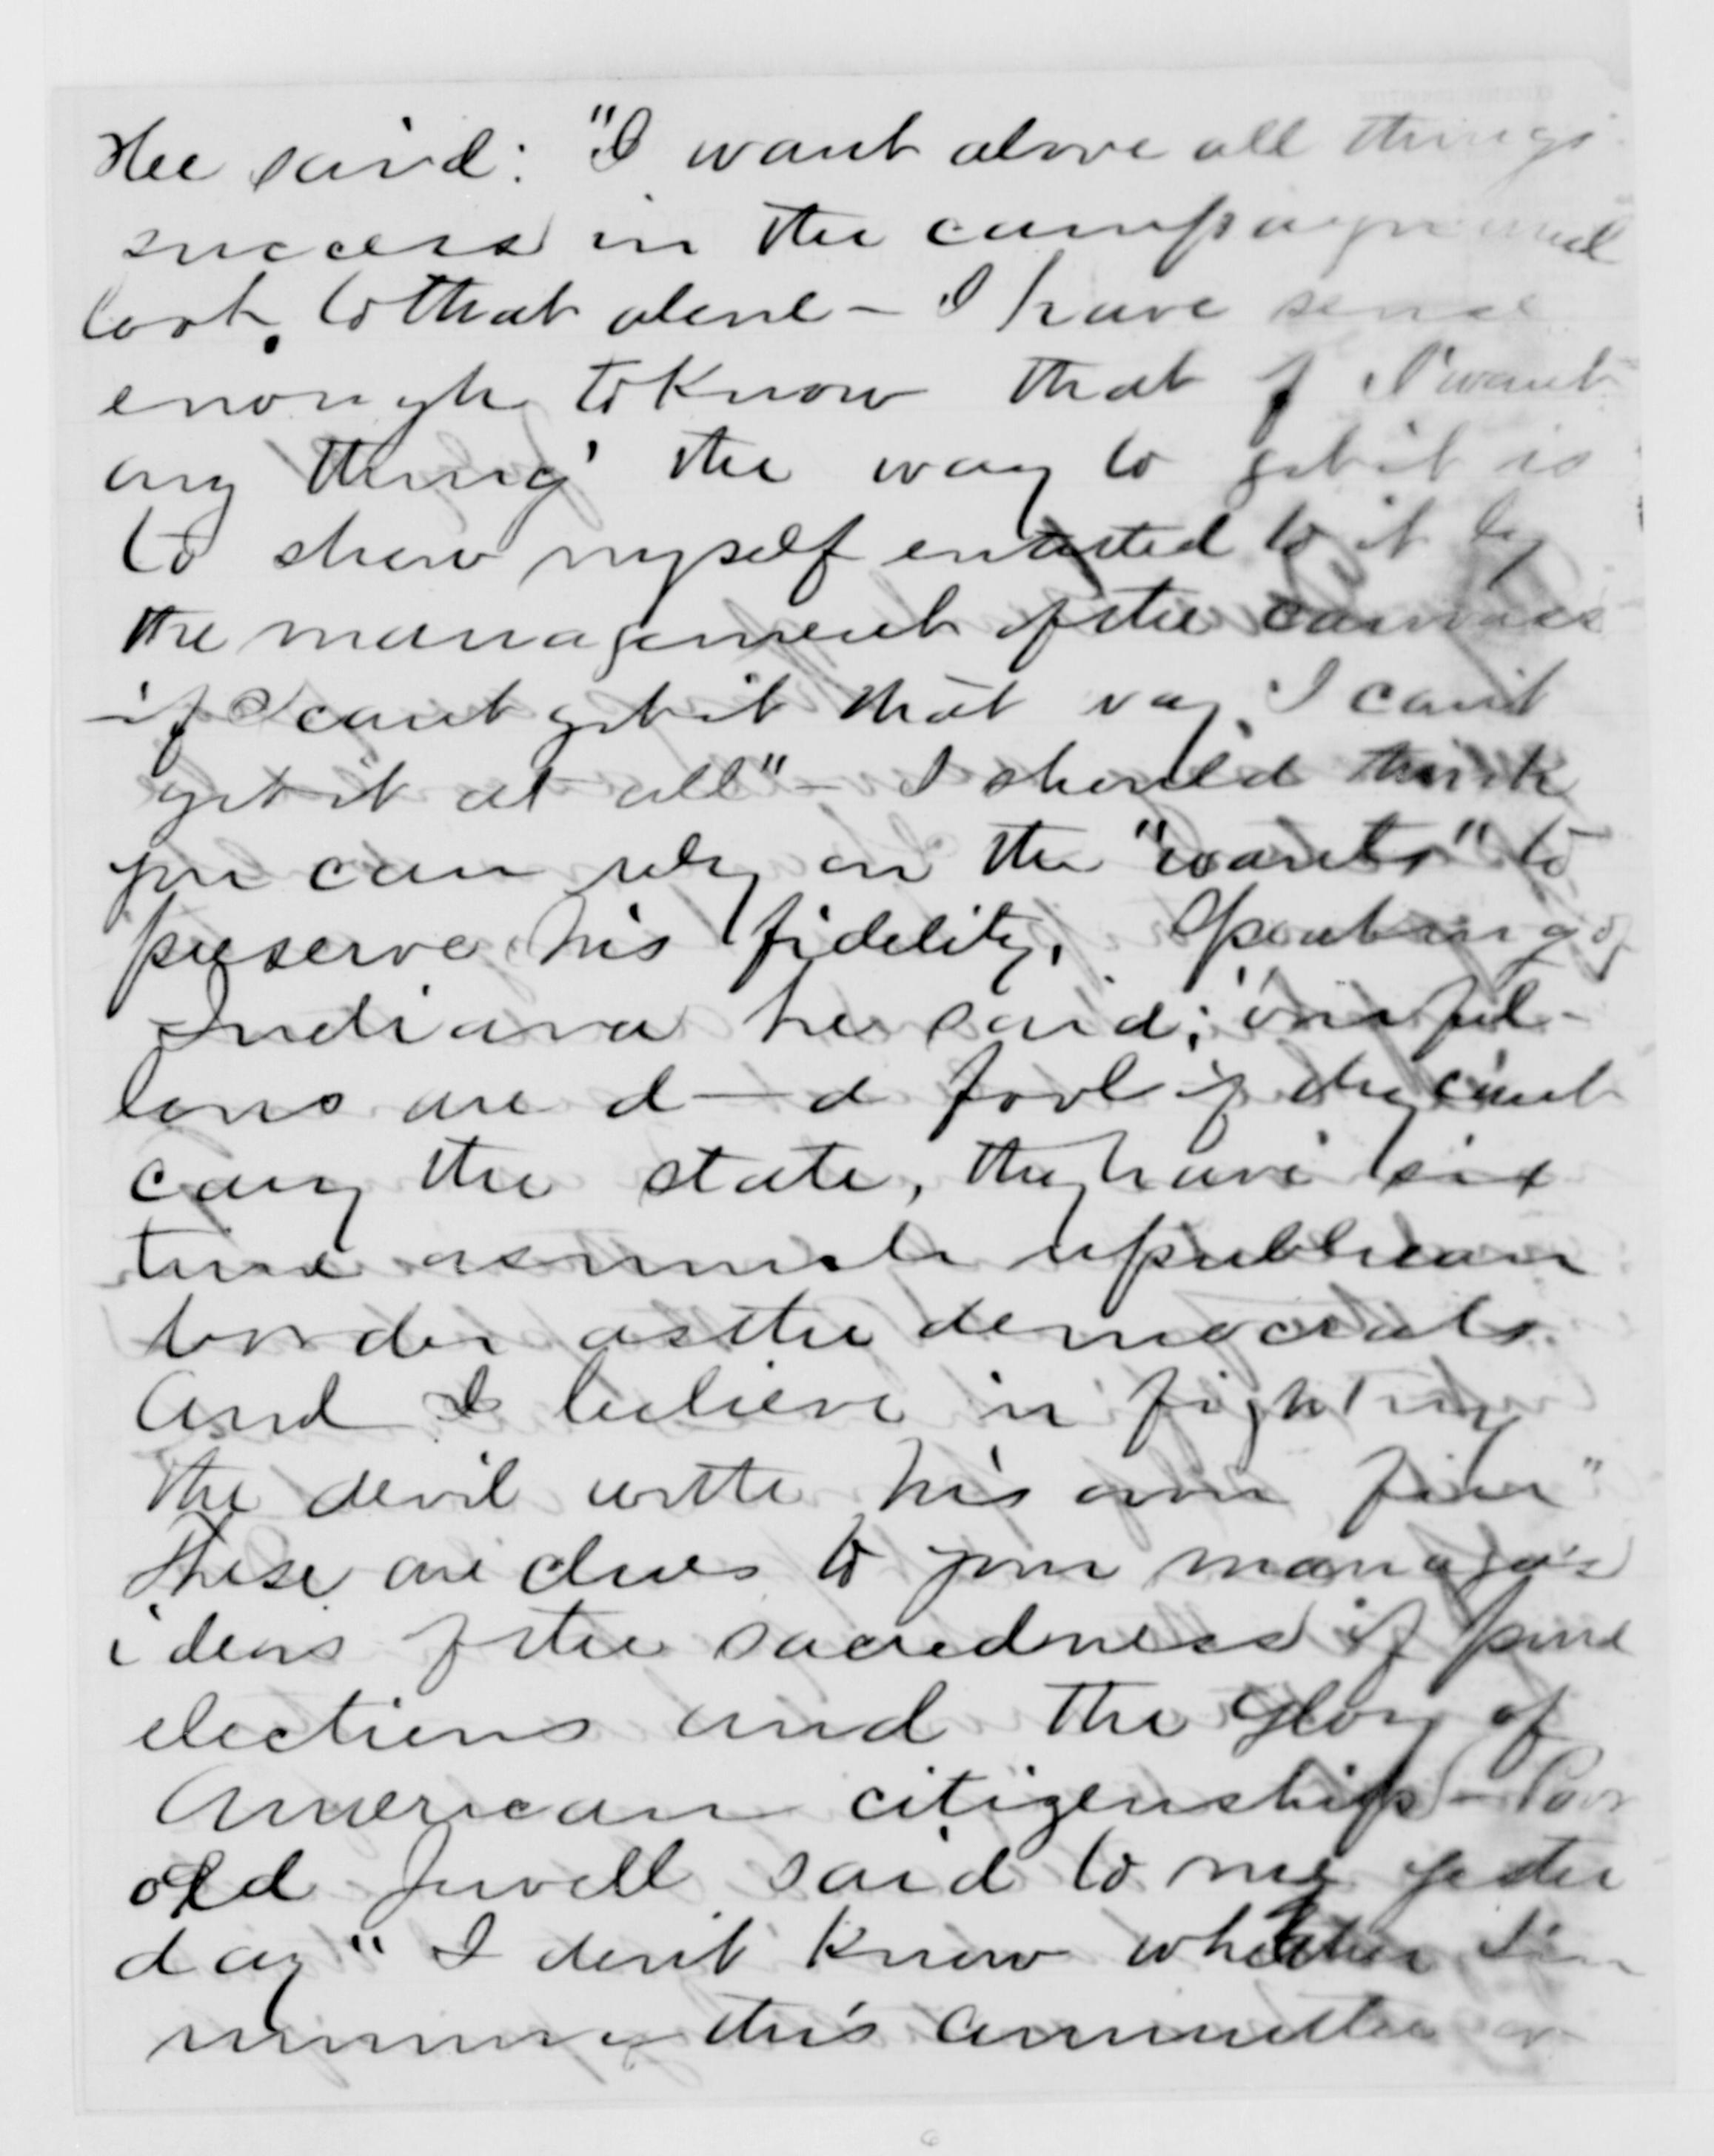 He said: "I want above all things
success in the campaign and
look to that alone - I have sense
enough to know that if I want
any thing the way to get it is
to show myself entitled to it by
the management of the canvass
- if I cant get it that way, I can't
get it at all" - I should think
you can rely on the "wants" to
preserve his fidelity. Speaking of
Indiana he said; "our fel-
lows are d—d fools if they can't
carry the state, they have six
times as much republican
border as the democrats
And I believe in fighting
the devil with his own fire"
These are clues to your managers
ideas of the sacredness of pure
elections and the glory of
American citizenship - Poor
old Jewell said to me yester
day "I don't know whether I'm
running this committee or